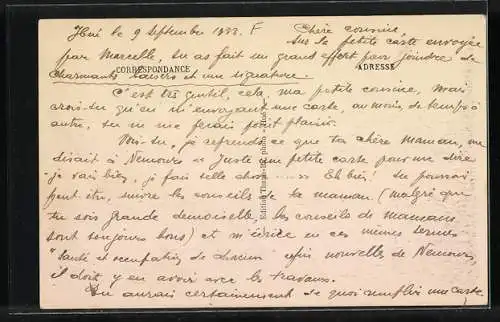 Hué le 9 septembre 1933. F
Chère cousine,
Sur la petite carte envoyée
par Marcelle, tu as fait un grand effort pour joindre de
CORRESPONDANCE
ADRESSE
charmants baisers et une signature.
C'est très gentil, cela, ma petite cousine, mais
crois-tu qu'en m'envoyant une carte, au moins, de temps à
autre, tu ne me ferais point plaisir.
Vois-tu, je reprends ce que ta chère Maman, me
disait à Nemours « Juste une petite carte pour me dire
- je vais bien, je fais telle chose » Eh bien! Tu pourrais
peut-être, suivre les conseils de ta maman (malgré que
tu sois grande demoiselle, les conseils de mamans
sont toujours bons) et m'écrire en ces mêmes termes
" Santé et occupation de chacun enfin nouvelles de Nemours,
il doit y en avoir avec les travaux.
Tu aurais certainement de quoi remplir une carte
Edition